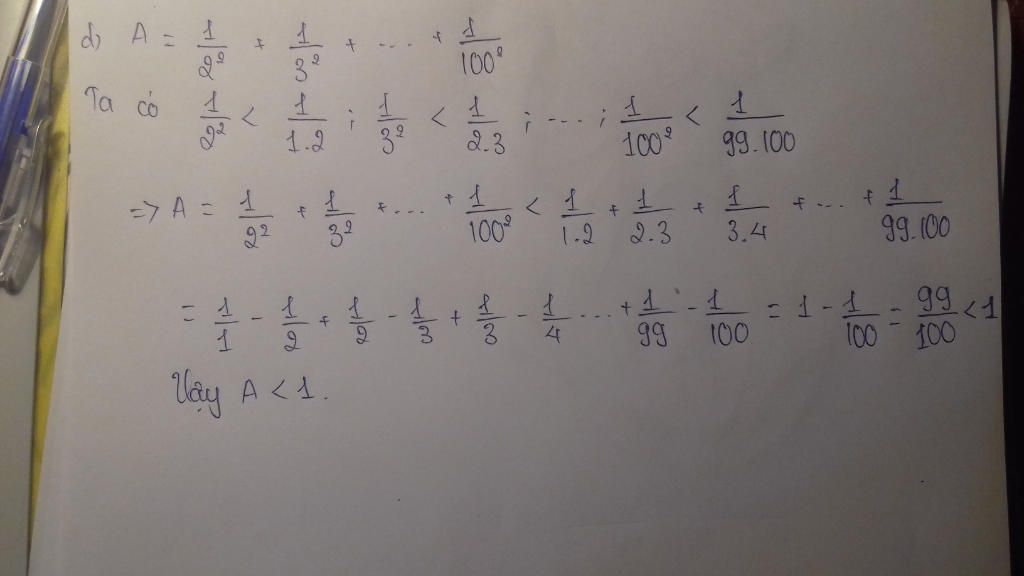 d) A = 1/2² + 1/3² + ... + 1/100²
Ta có 1/2² < 1/1.2 ; 1/3² < 1/2.3 ; ... ; 1/100² < 1/99.100
=> A = 1/2² + 1/3² + ... + 1/100² < 1/1.2 + 1/2.3 + 1/3.4 + ... + 1/99.100
= 1/1 - 1/2 + 1/2 - 1/3 + 1/3 - 1/4 ... + 1/99 - 1/100 = 1 - 1/100 = 99/100 < 1
Vậy A < 1.